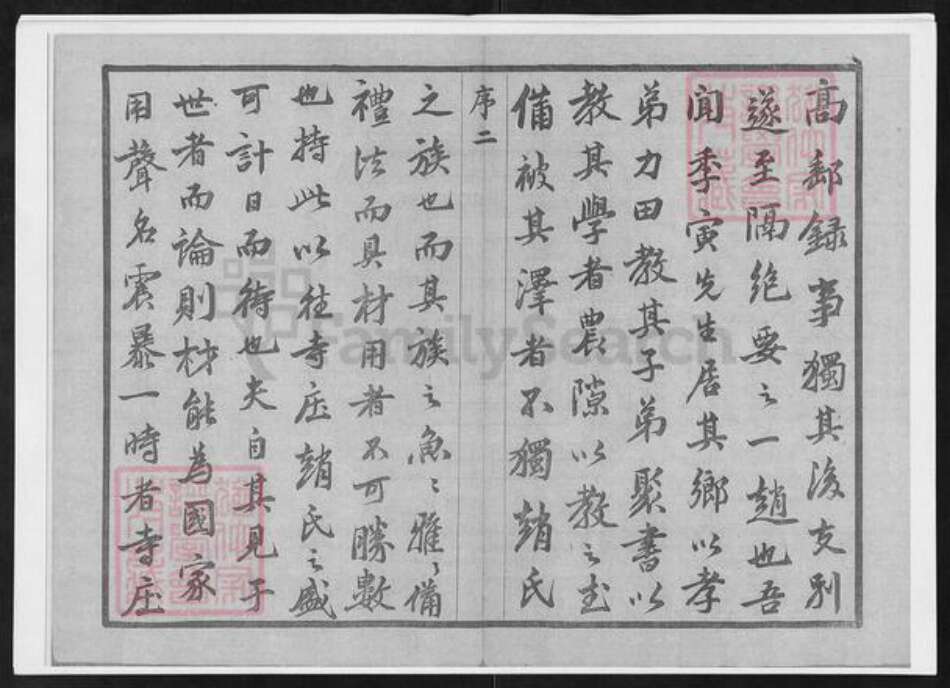 高郵録事獨其後支别
遂至隔絶要之一趙也吾
聞季寅先生居其鄉以孝
弟力田教其子弟聚書以
教其學者農隙以教之武
備被其澤者不獨趙氏
序二
之族也而其族之魚魚雅雅備
禮法而具材用者不可勝數
也持此以往寺庄趙氏之盛
可計日而待也夫自其見于
世者而論則材能為國家
用聲名震暴一時者寺庄
FamilySearch